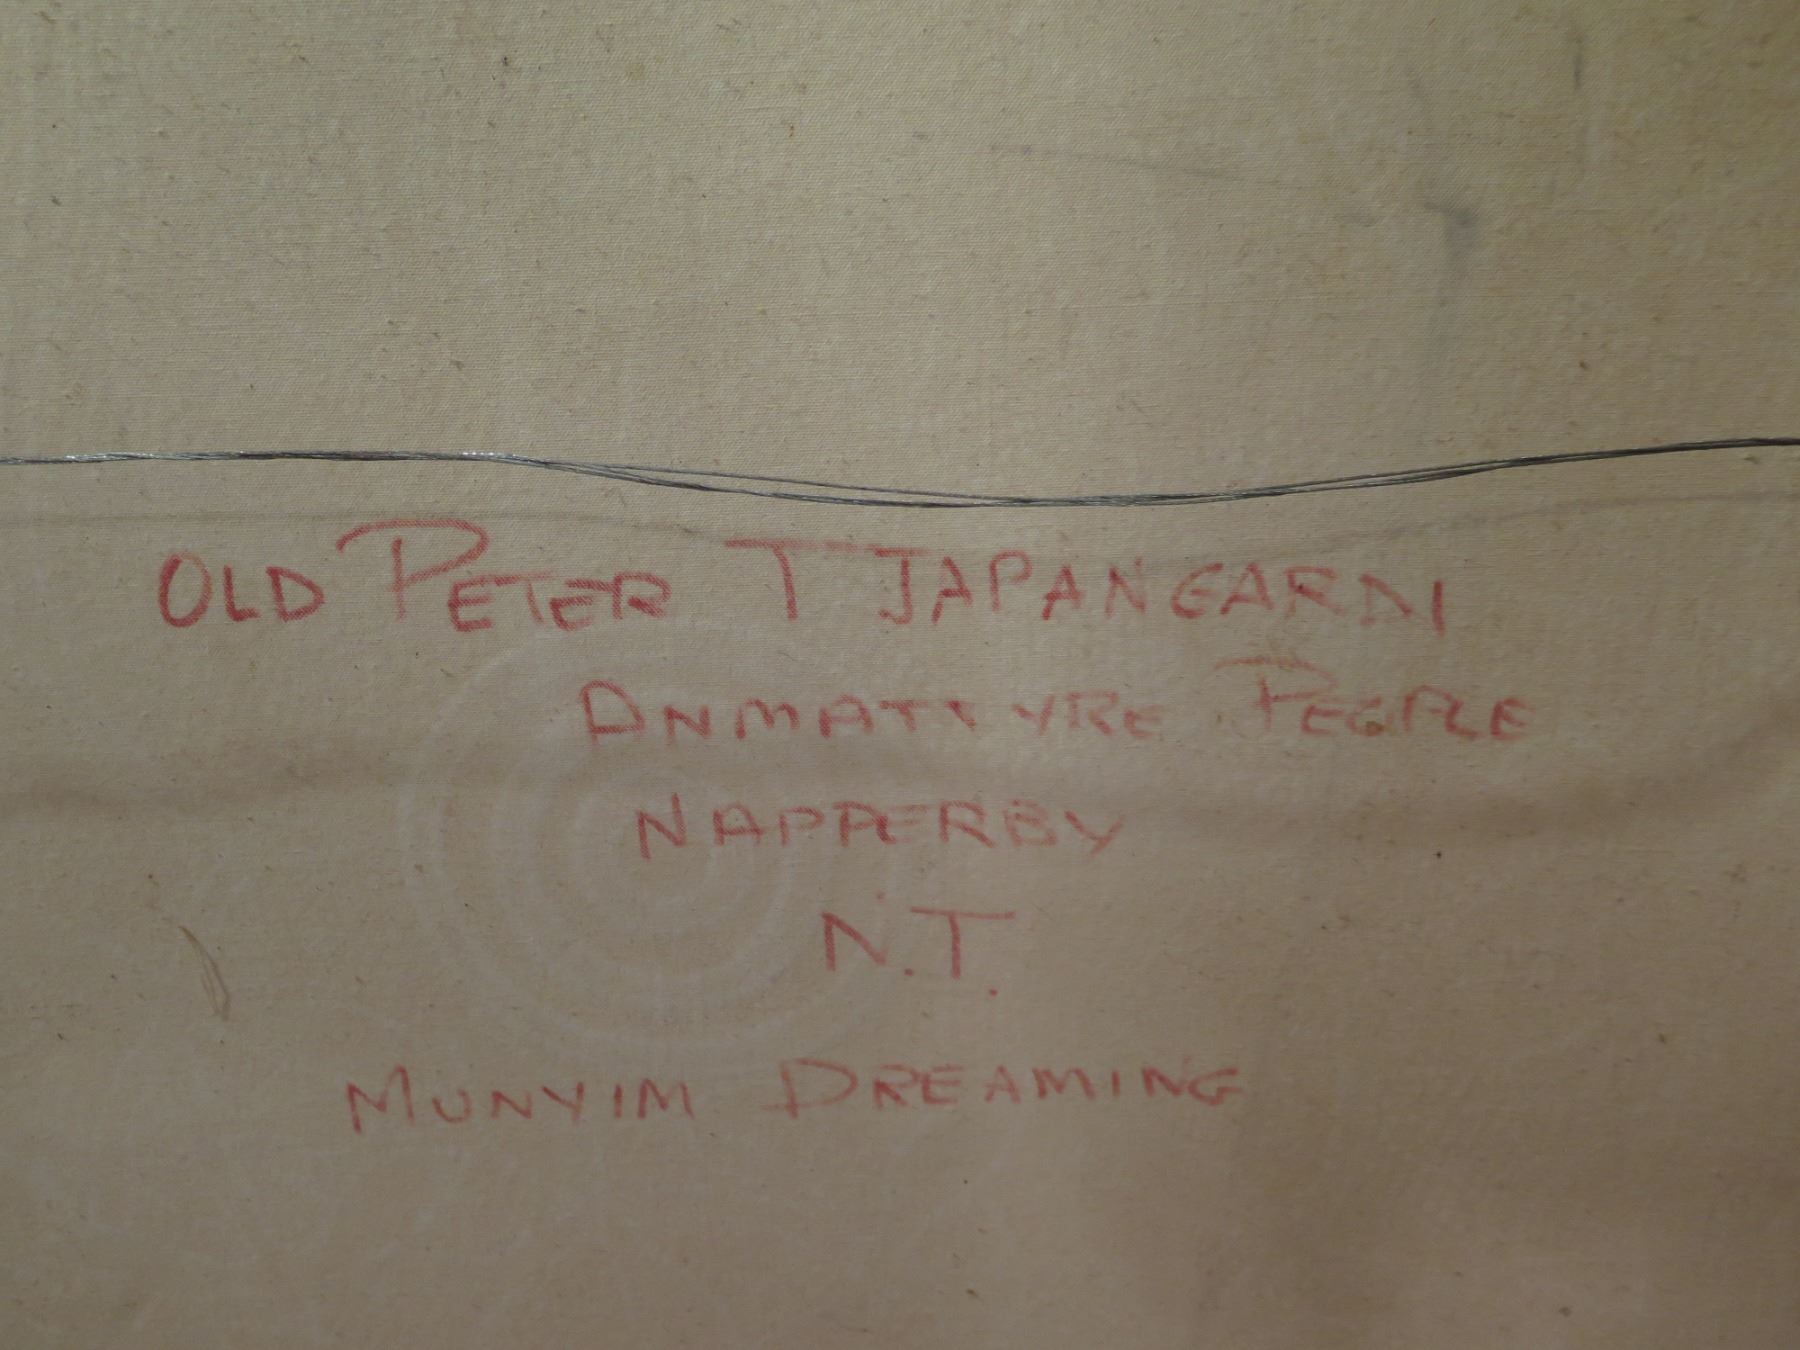 OLD PETER TJAPANGARDI
ANMATTYRE PEOPLE
NAPPERBY
N.T.
MUNYIM DREAMING